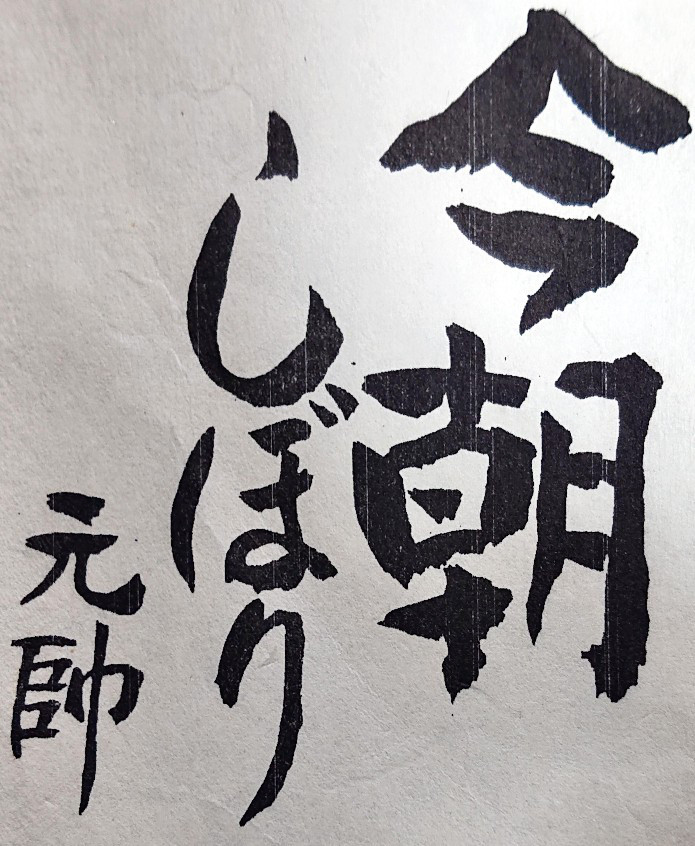 今朝
しぼり
元帥